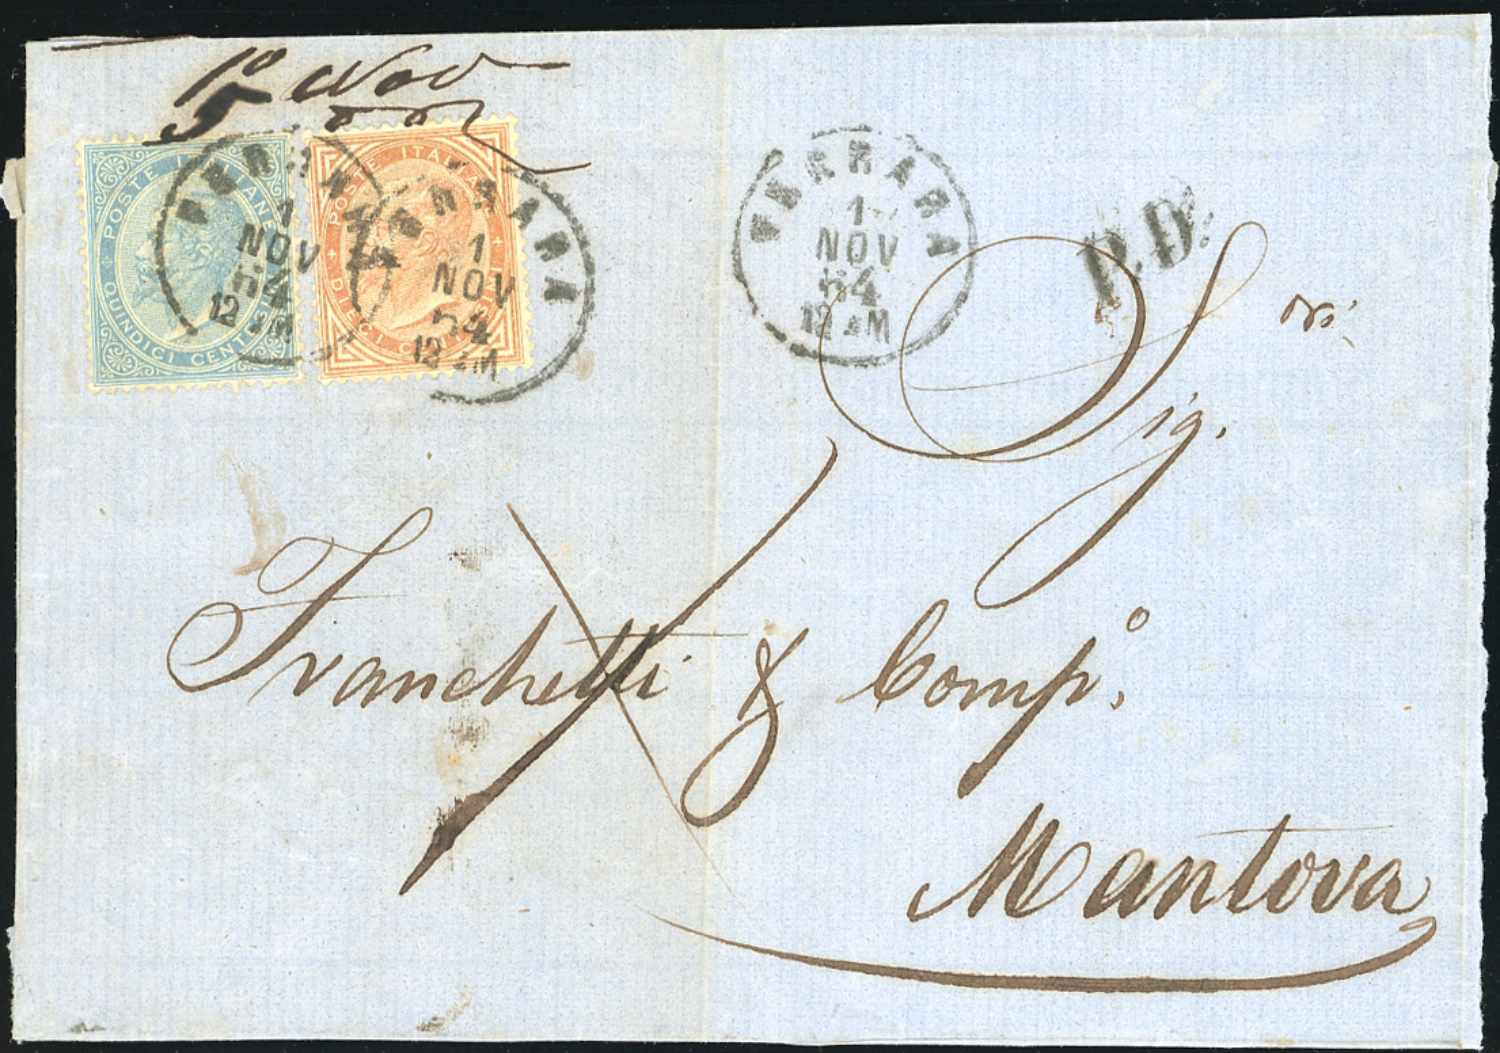 1º Nov
5
POSTE ITALIANE
QUINDICI CENTESIMI
POSTE ITALIANE
DIECI CENTESIMI
FERRARA
1
NOV
64
12 M
FERRARA
1
NOV
64
12 M
FERRARA
1
NOV
64
12 M
P.D.
Sigri
Franchetti & Compº
Mantova